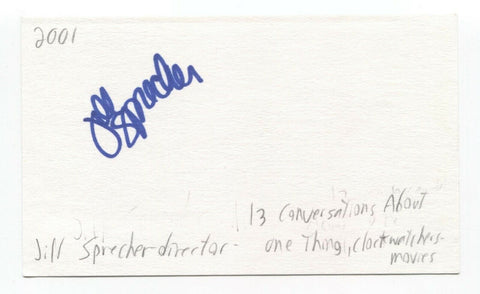 2001
Jill Sprecher
13 Conversations About
Jill Sprecher-director- one Thing, clockwatchers-
movies